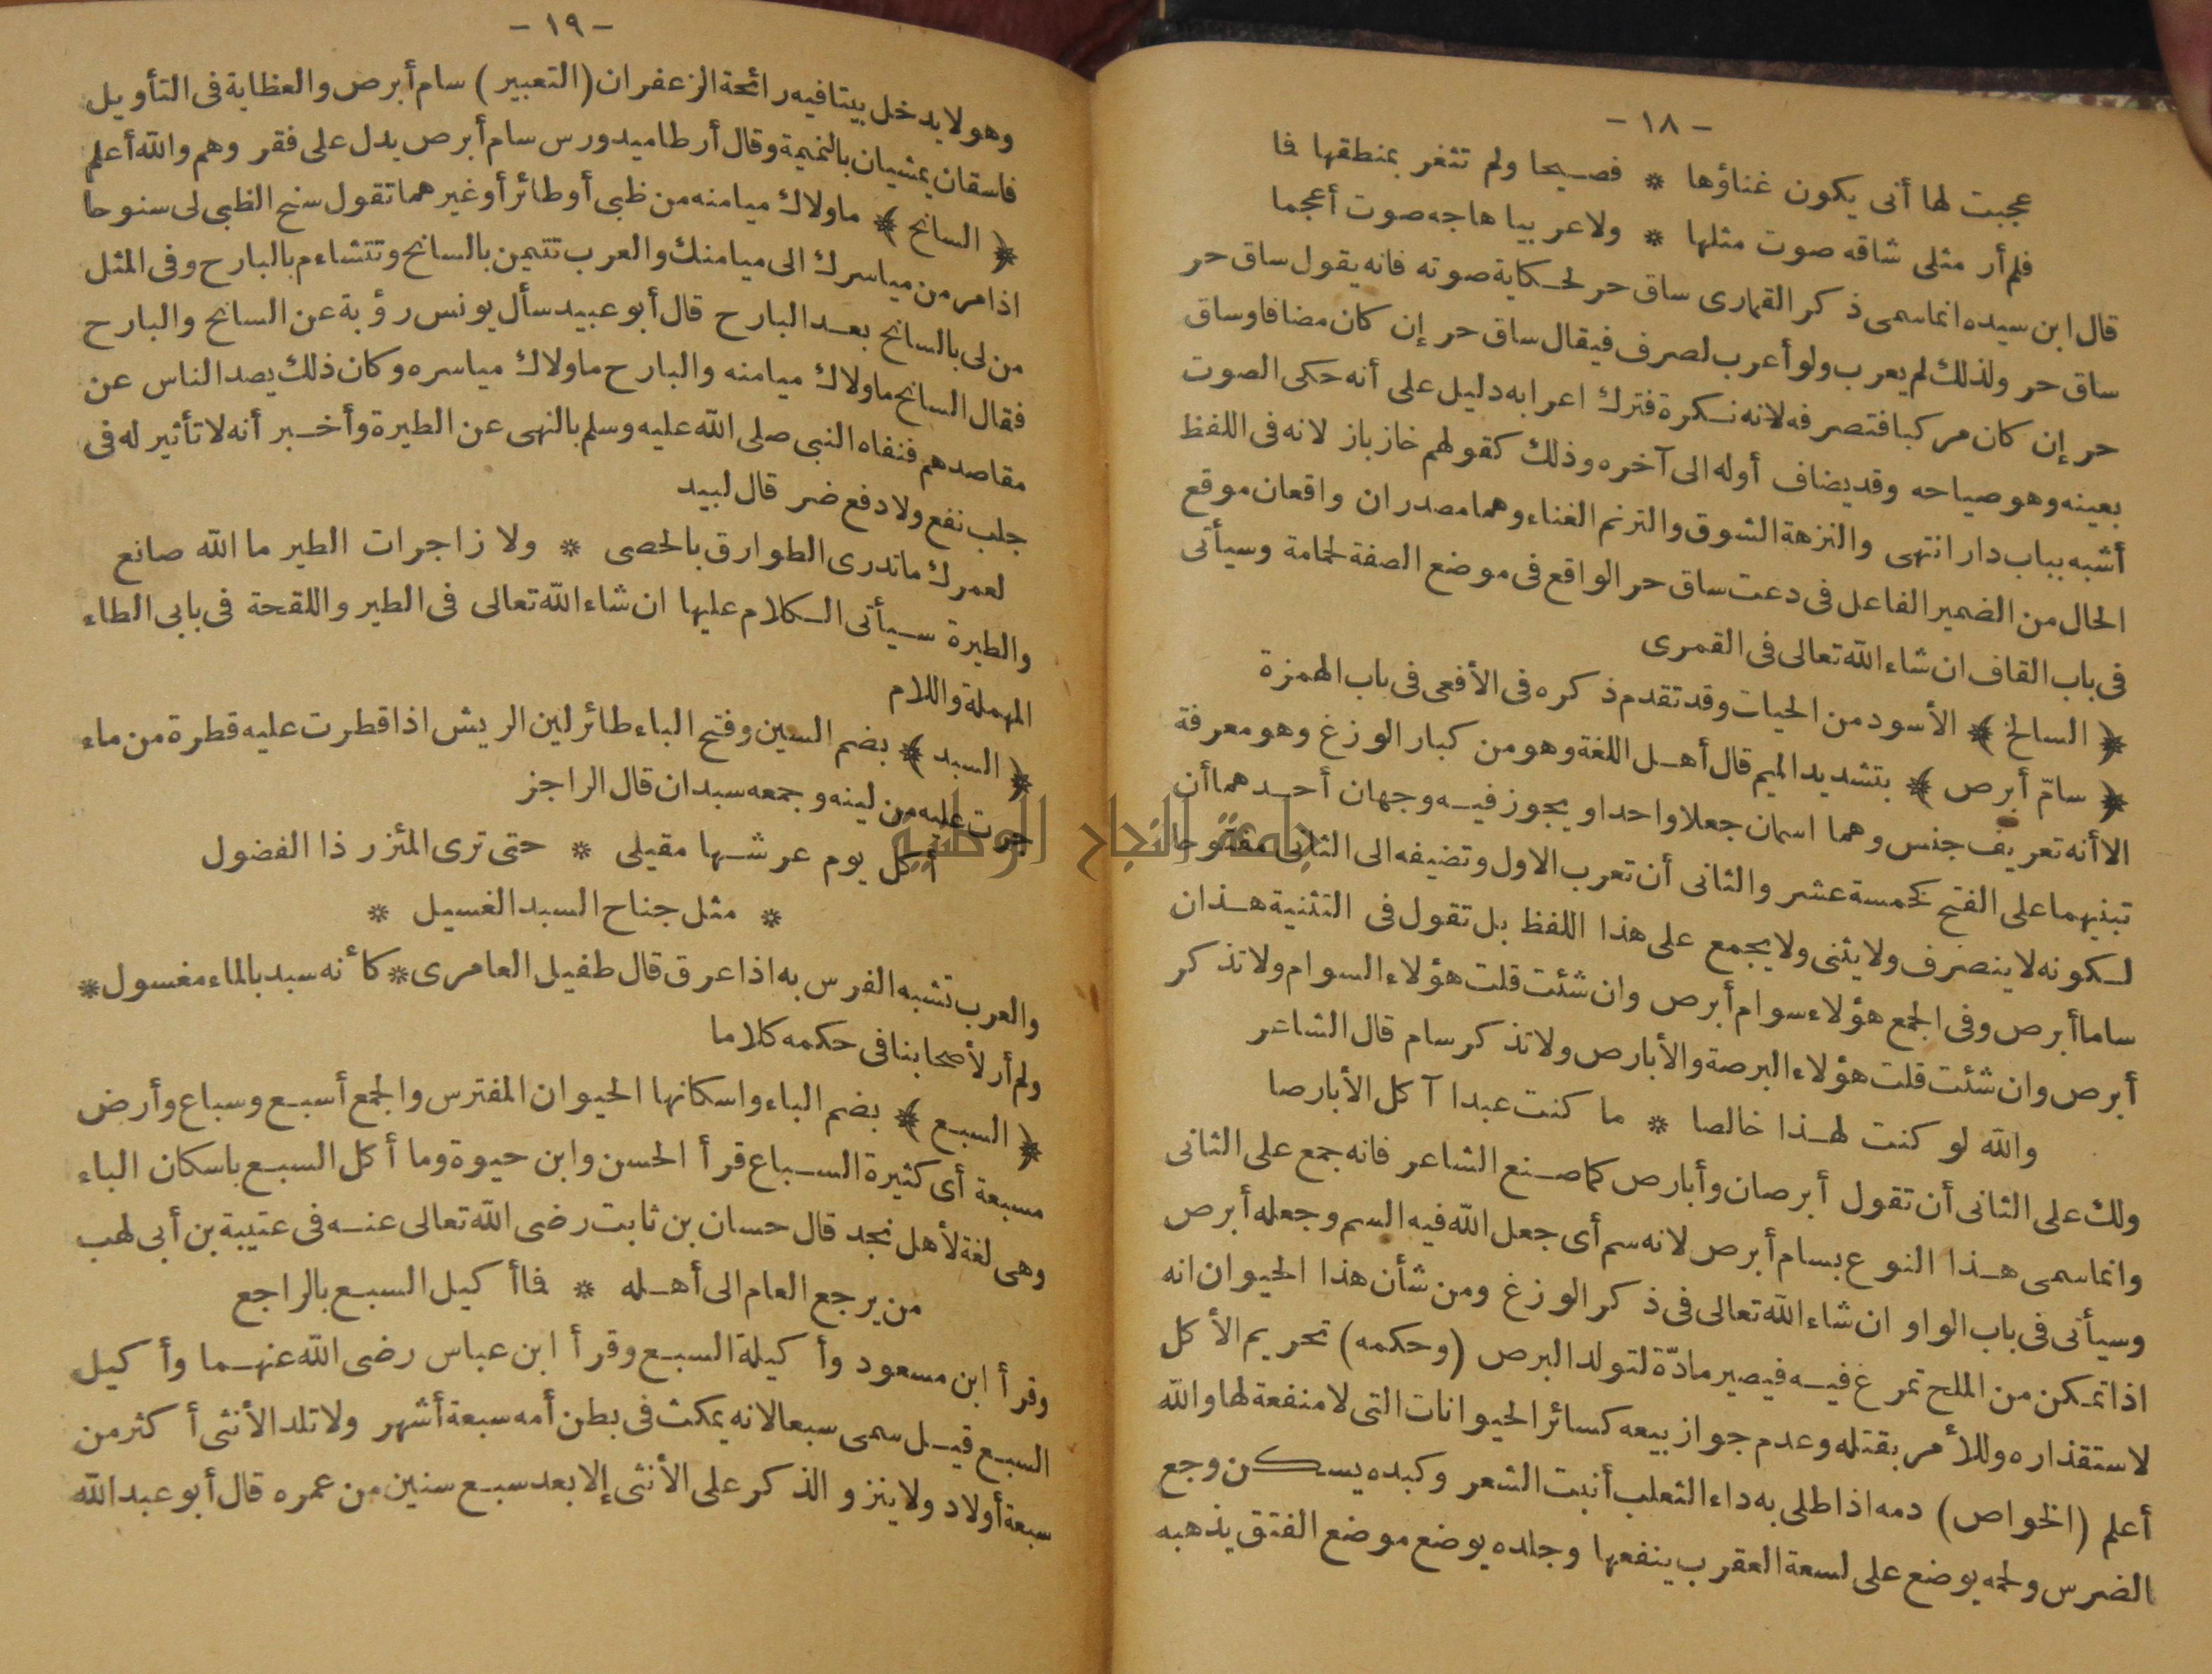 - ١٨ -
عجبت لها أنى يكون غناؤها * فصيحا ولم تثغر بمنطقها فا
فلم أر مثلى شاقه صوت مثلها * ولا عربيا هاجه صوت أعجما
قال ابن سيده انما سمى ذكر القمارى ساق حر لحكاية صوته فانه يقول ساق حر
ساق حر ولذلك لم يعرب ولو أعرب لصرف فيقال ساق حر إن كان مضافا وساق
حر إن كان مركبا فتصرفه لانه نكرة فترك اعرابه دليل على أنه حكى الصوت
بعينه وهو صياحه وقد يضاف أوله الى آخره وذلك كقولهم خازباز لانه فى اللفظ
أشبه بباب دار انتهى والنزهة الشوق والترنم الغناء وهما مصدران واقعان موقع
الحال من الضمير الفاعل فى دعت ساق حر الواقع فى موضع الصفة لحمامة وسيأتى
فى باب القاف ان شاء الله تعالى فى القمرى
﴿ السالخ ﴾ الأسود من الحيات وقد تقدم ذكره فى الأفعى فى باب الهمزة
﴿ سامّ أبرص ﴾ بتشديد الميم قال أهل اللغة وهو من كبار الوزغ وهو معرفة
الا أنه تعريف جنس وهما اسمان جعلا واحدا ويجوز فيه وجهان أحدهما أن
تبنيهما على الفتح كخمسة عشر والثانى أن تعرب الاول وتضيفه الى الثانى مفتوحا
لكونه لا ينصرف ولا يثنى ولا يجمع على هذا اللفظ بل تقول فى التثنية هذان
ساما أبرص وفى الجمع هؤلاء سوام أبرص وان شئت قلت هؤلاء السوام ولا تذكر
أبرص وان شئت قلت هؤلاء البرصة والأبارص ولا تذكر سام قال الشاعر
والله لو كنت لهذا خالصا * ما كنت عبدا آكل الأبارصا
ولك على الثانى أن تقول أبرصان وأبارص كما صنع الشاعر فانه جمع على الثانى
وانما سمى هذا النوع بسام أبرص لانه سم أى جعل الله فيه السم وجعله أبرص
وسيأتى فى باب الواو ان شاء الله تعالى فى ذكر الوزغ ومن شأن هذا الحيوان انه
اذا تمكن من الملح تمرغ فيه فيصير مادّة لتولد البرص (وحكمه) تحريم الأكل
لاستقذاره وللأمر بقتله وعدم جواز بيعه كسائر الحيوانات التى لا منفعة لها والله
أعلم (الخواص) دمه اذا طلى به داء الثعلب أنبت الشعر وكبده يسكن وجع
الضرس ولحمه يوضع على لسعة العقرب ينفعها وجلده يوضع موضع الفتق يذهبه
- ١٩ -
وهو لا يدخل بيتا فيه رائحة الزعفران (التعبير) سام أبرص والعظاية فى التأويل
فاسقان يمشيان بالنميمة وقال أرطاميدورس سام أبرص يدل على فقر وهم والله أعلم
﴿ السانح ﴾ ما ولاك ميامنه من ظبى أو طائر أو غيرهما تقول سنح الظبى لى سنوحا
اذا مر من مياسرك الى ميامنك والعرب تتيمن بالسانح وتتشاءم بالبارح وفى المثل
من لى بالسانح بعد البارح قال أبو عبيد سأل يونس رؤبة عن السانح والبارح
فقال السانح ما ولاك ميامنه والبارح ما ولاك مياسره وكان ذلك يصد الناس عن
مقاصدهم فنفاه النبى صلى الله عليه وسلم بالنهى عن الطيرة وأخبر أنه لا تأثير له فى
جلب نفع ولا دفع ضر قال لبيد
لعمرك ما تدرى الطوارق بالحصى * ولا زاجرات الطير ما الله صانع
والطيرة سيأتى الكلام عليها ان شاء الله تعالى فى الطير واللقحة فى بابى الطاء
المهملة واللام
﴿ السبد ﴾ بضم السين وفتح الباء طائر لين الريش اذا قطرت عليه قطرة من ماء
جرت عليه من لينه وجمعه سبدان قال الراجز
أكل يوم عرشها مقيلى * حتى ترى المئزر ذا الفضول
* مثل جناح السبد الغسيل *
والعرب تشبه الفرس به اذا عرق قال طفيل العامرى * كأنه سبد بالماء مغسول *
ولم أر لأصحابنا فى حكمه كلاما
﴿ السبع ﴾ بضم الباء واسكانها الحيوان المفترس والجمع أسبع وسباع وأرض
مسبعة أى كثيرة السباع قرأ الحسن وابن حيوة وما أكل السبع باسكان الباء
وهى لغة لأهل نجد قال حسان بن ثابت رضى الله تعالى عنه فى عتيبة بن أبى لهب
من يرجع العام الى أهله * فما أكيل السبع بالراجع
وقرأ ابن مسعود وأكيلة السبع وقرأ ابن عباس رضى الله عنهما وأكيل
السبع قيل سمى سبعا لانه يمكث فى بطن أمه سبعة أشهر ولا تلد الأنثى أكثر من
سبعة أولاد ولا ينزو الذكر على الأنثى إلا بعد سبع سنين من عمره قال أبو عبد الله
جامعة النجاح الوطنية